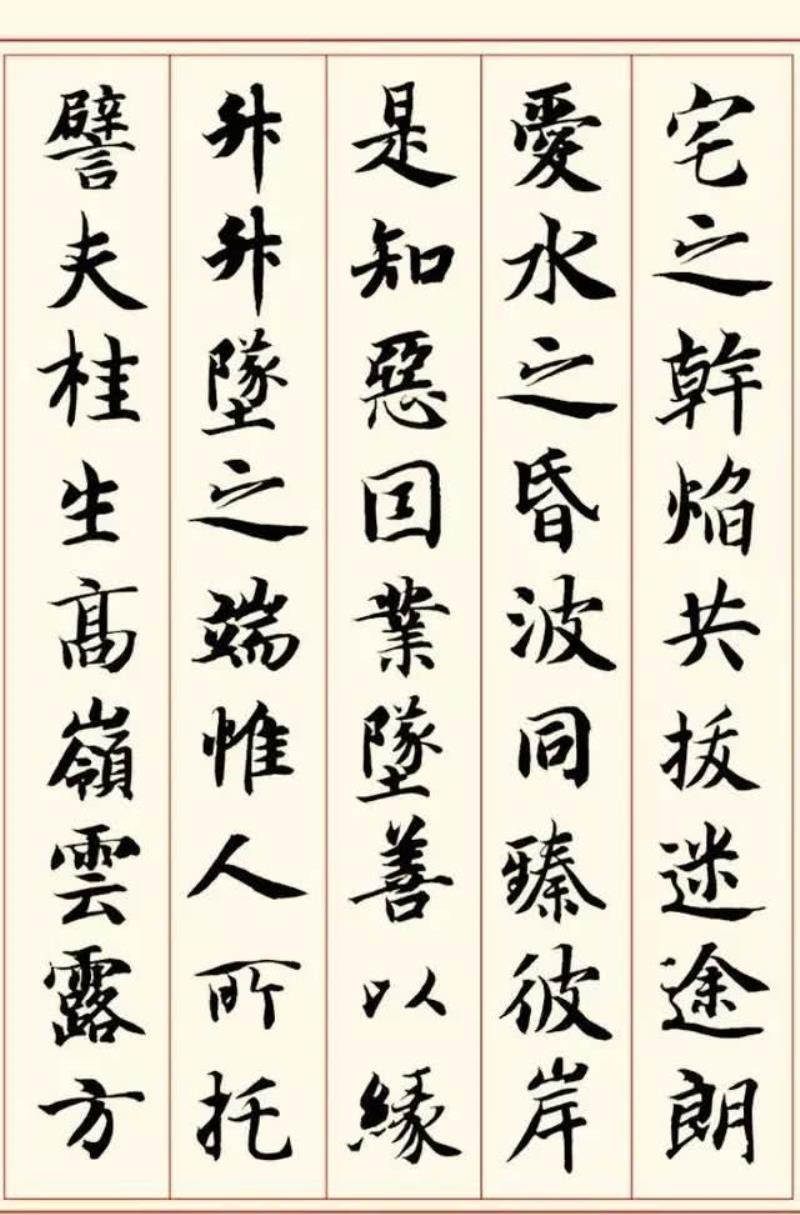 宅之幹焰共拔迷途朗
愛水之昏波同臻彼岸
是知惡因業墜善以緣
升升墜之端惟人所托
譬夫桂生高嶺雲露方